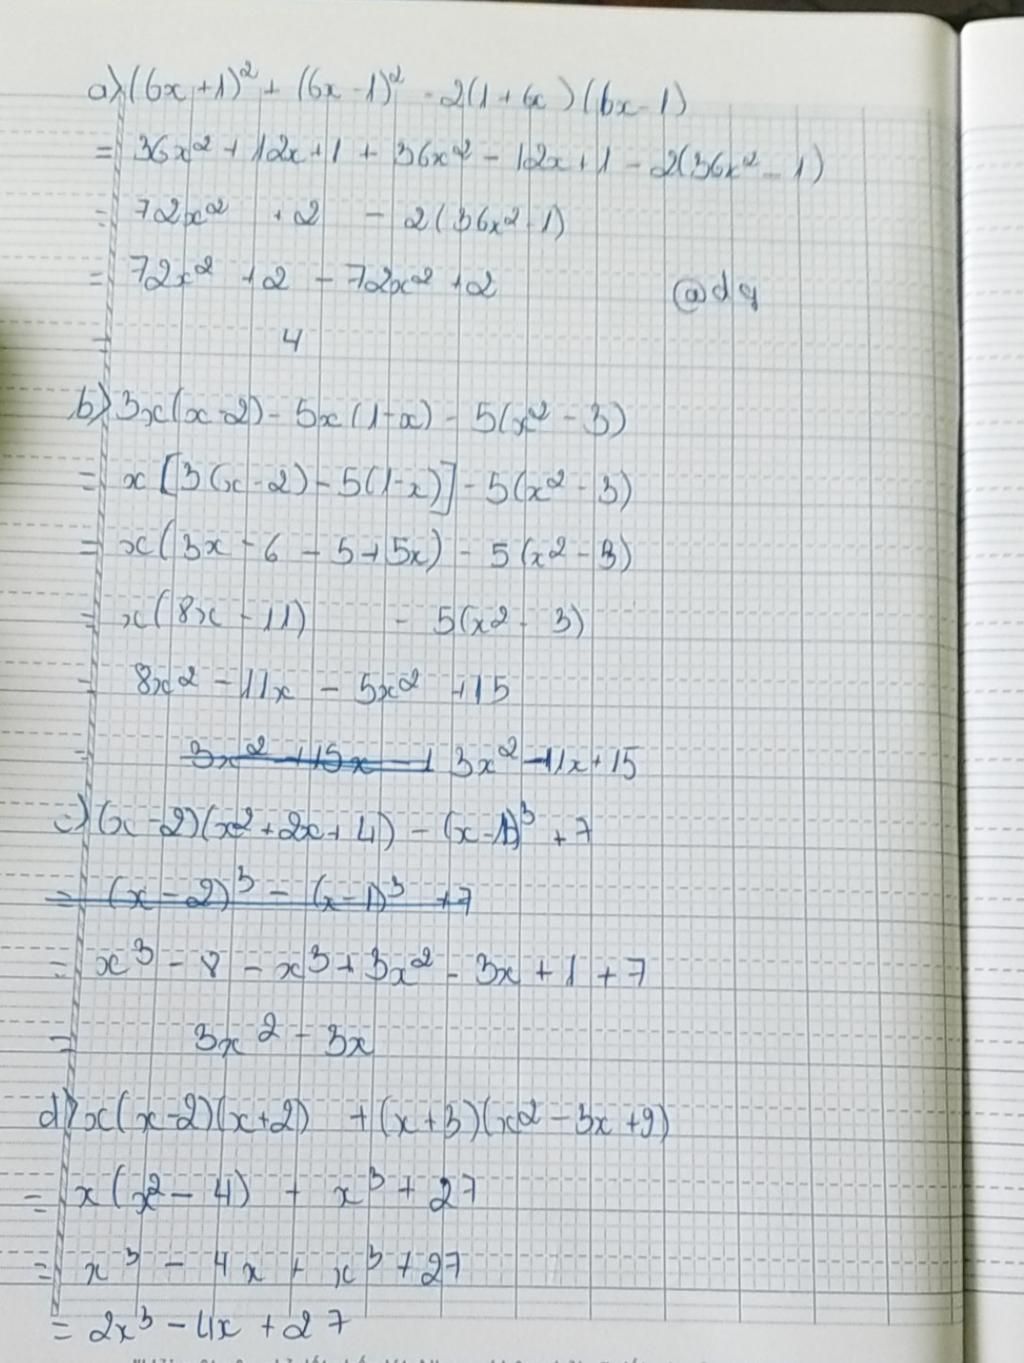 a) (6x+1)² + (6x-1)² - 2(1+6x)(6x-1)
= 36x² + 12x+1 + 36x² - 12x+1 - 2(36x² - 1)
= 72x² + 2 - 2(36x²-1)
= 72x² + 2 - 72x² + 2
@dq
= 4
b) 3x(x-2) - 5x(1-x) - 5(x² - 3)
= x[3(x-2) - 5(1-x)] - 5(x² - 3)
= x(3x - 6 - 5+5x) - 5(x² - 3)
= x(8x - 11) - 5(x² - 3)
= 8x² - 11x - 5x² + 15
= 3x² + 15x - 1 3x² - 11x + 15
c) (x-2)(x²+2x+4) - (x-1)³ + 7
= (x-2)³ - (x-1)³ + 7
= x³ - 8 - x³ + 3x² - 3x + 1 + 7
= 3x² - 3x
d) x(x-2)(x+2) + (x+3)(x² - 3x + 9)
= x(x² - 4) + x³ + 27
= x³ - 4x + x³ + 27
= 2x³ - 4x + 27